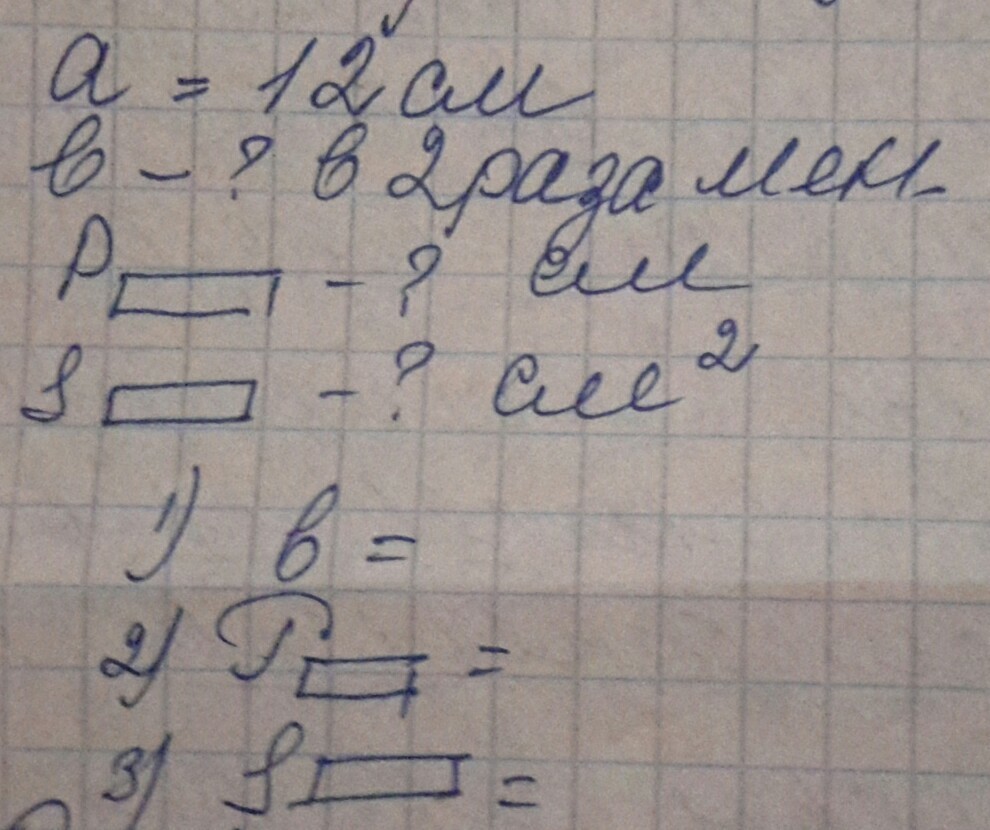 a = 12 см
в - ? в 2 раза мен.
P▭ - ? см
S▭ - ? см²
1) в =
2) P▭ =
3) S▭ =